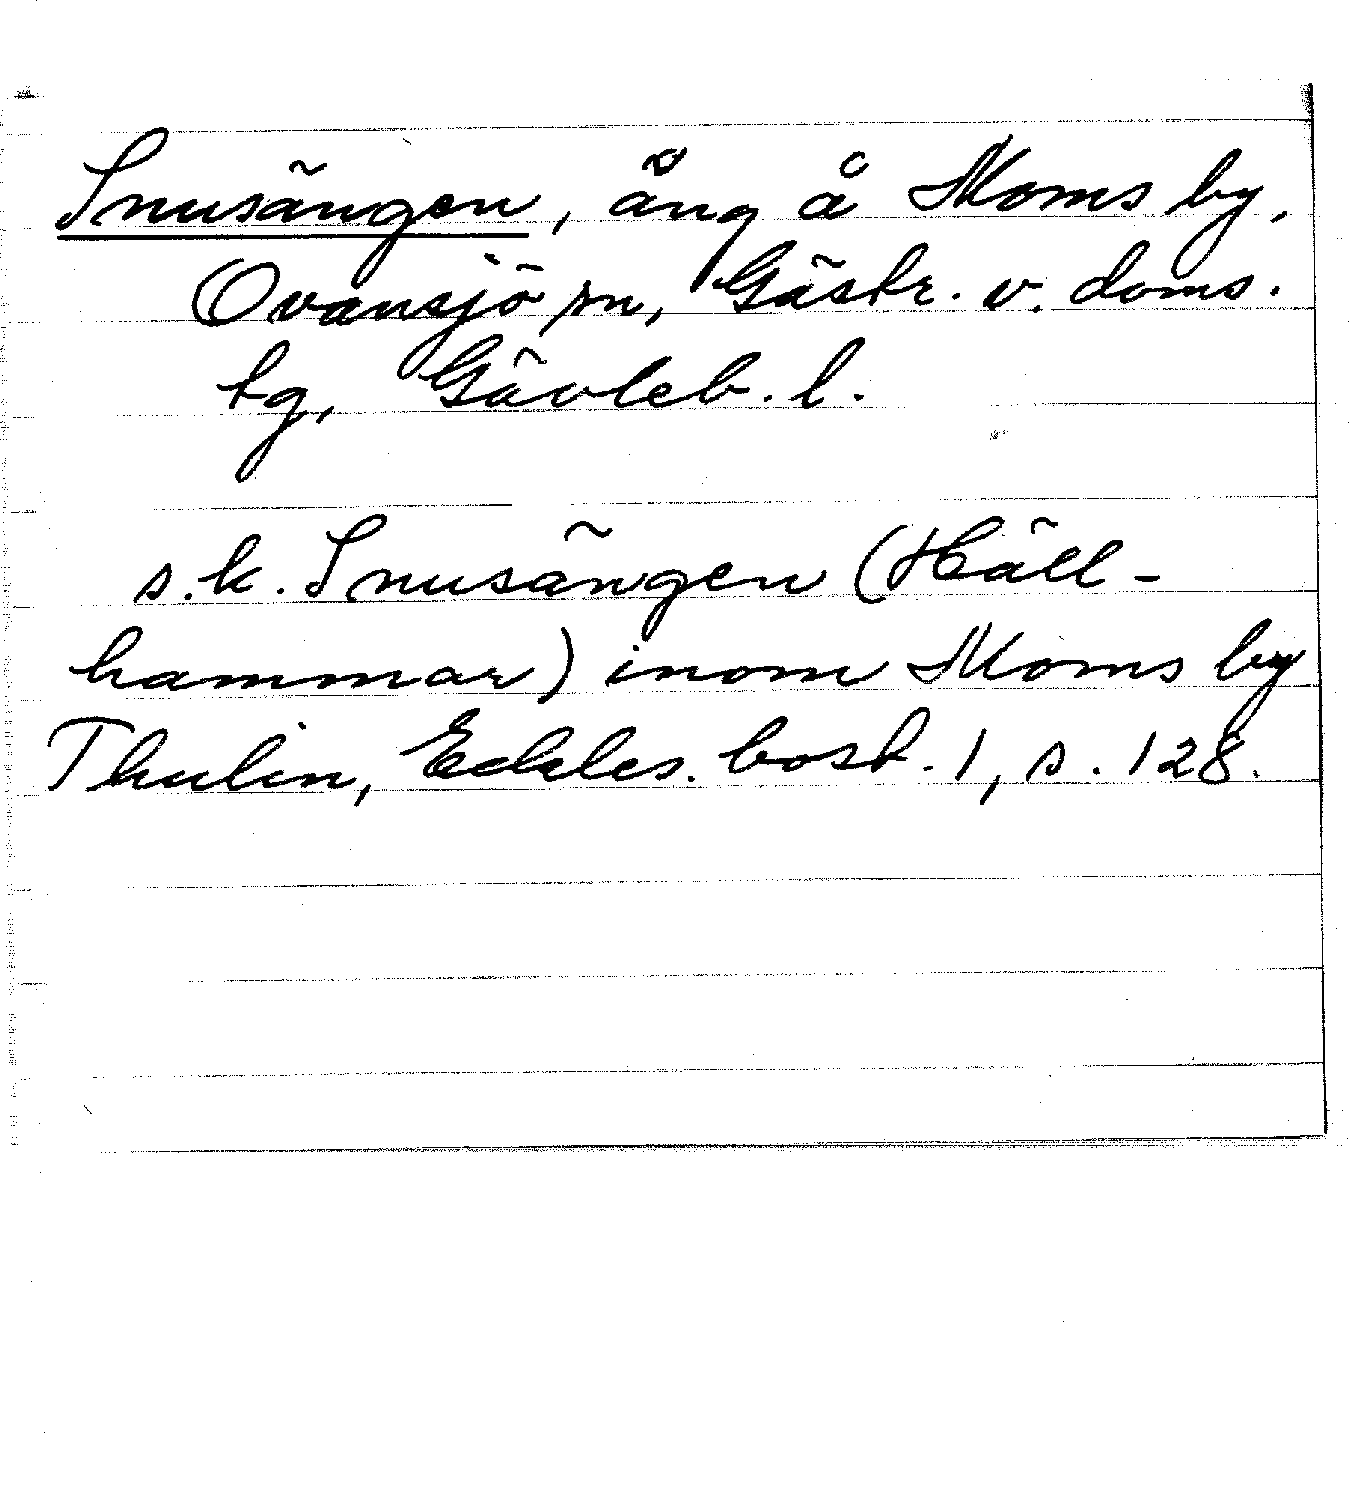 Snusängen, äng å Moms by,
Ovansjö sn, Gästr. v. doms.
tg, Gävleb. l.
s.k. Snusängen (Häll-
hammar) inom Moms by
Thulin, Eckles. bost. 1, s. 128.